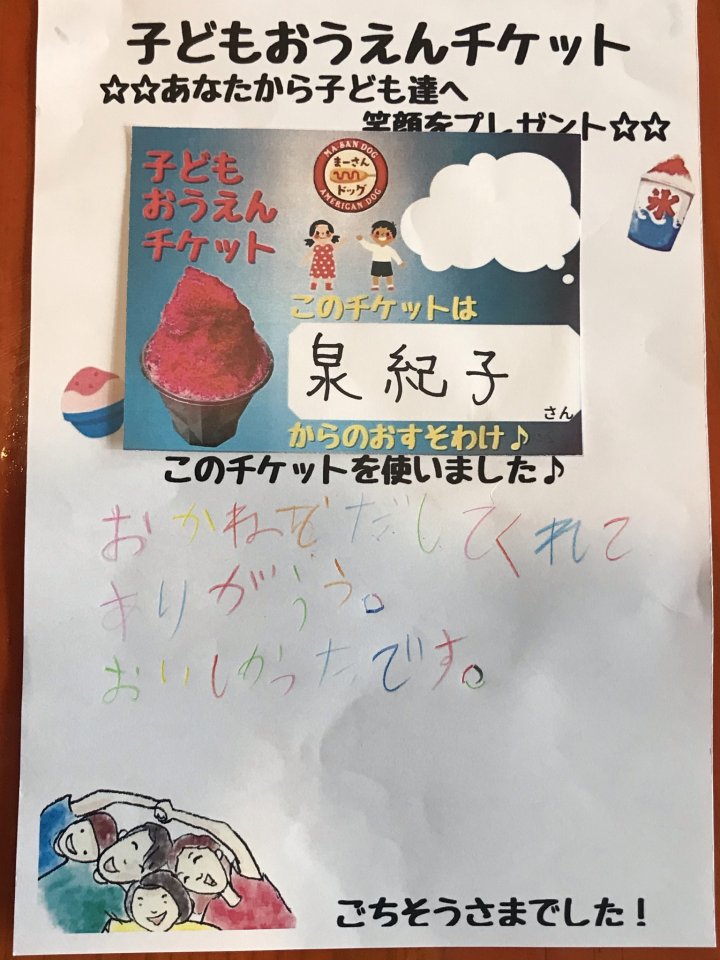 子どもおうえんチケット
☆☆あなたから子ども達へ
笑顔をプレゼント☆☆
子ども
おうえん
チケット
MA SAN DOG
まーさん
ドッグ
AMERICAN DOG
氷
このチケットは
泉紀子
さん
からのおすそわけ♪
このチケットを使いました♪
おかねをだしてくれて
ありがうう。
おいしかったです。
ごちそうさまでした!